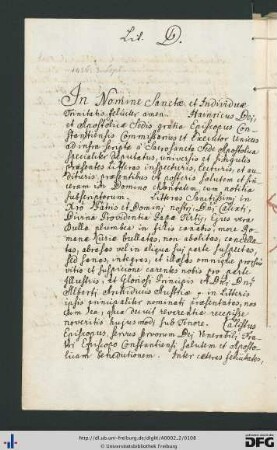 Lit. D.
In Nomine Sanctæ et Individuæ
Trinitatis feliciter amen. Hainricus Dei
et Apostolicæ Sedis gratia Episcopus Con-
stantiensis Commissarius et Executor Unicus
ad infra scripta à Sacrosancta Sede Apostolica
specialiter deputatus, universis et singulis
præsentes litteras inspecturis, lecturis, et au-
dituris præsentibus et posteris salutem et sin-
ceram in Domino charitatem, cum notitia
subscriptorum. Litteras Sanctissimi in
Xro Patris et Domini nostri Dni Calixti,
Divina Providentia Papæ Tertij, eius vera
Bulla plumbea in filis canapis, more Ro-
manæ Curiæ bullatas, non abolitas, cancella-
tas, abrasas vel in aliqua sui parte suspectas,
sed sanas, integras, et illæsas omnique prorsus
vitio et suspicione carentes nobis pro parte
Illustris, et Gloriosi Principis et Dni, Dni
Alberti Archiducis Austriæ, in litteris
ipsis principaliter nominati præsentatas, nos
cum ea, qua decuit reverentia recepisse
noveritis huiusmodi sub Tenore. Calistus
Episcopus, servus servorum Dei Venerabili Fra-
tri Episcopo Constantiensi Salutem et Aposto-
licam benedictionem. Inter cæteras felicitates,
http://dl.ub.uni-freiburg.de/diglit/40002.2/0108
© Universitätsbibliothek Freiburg
gefördert durch die
DFG